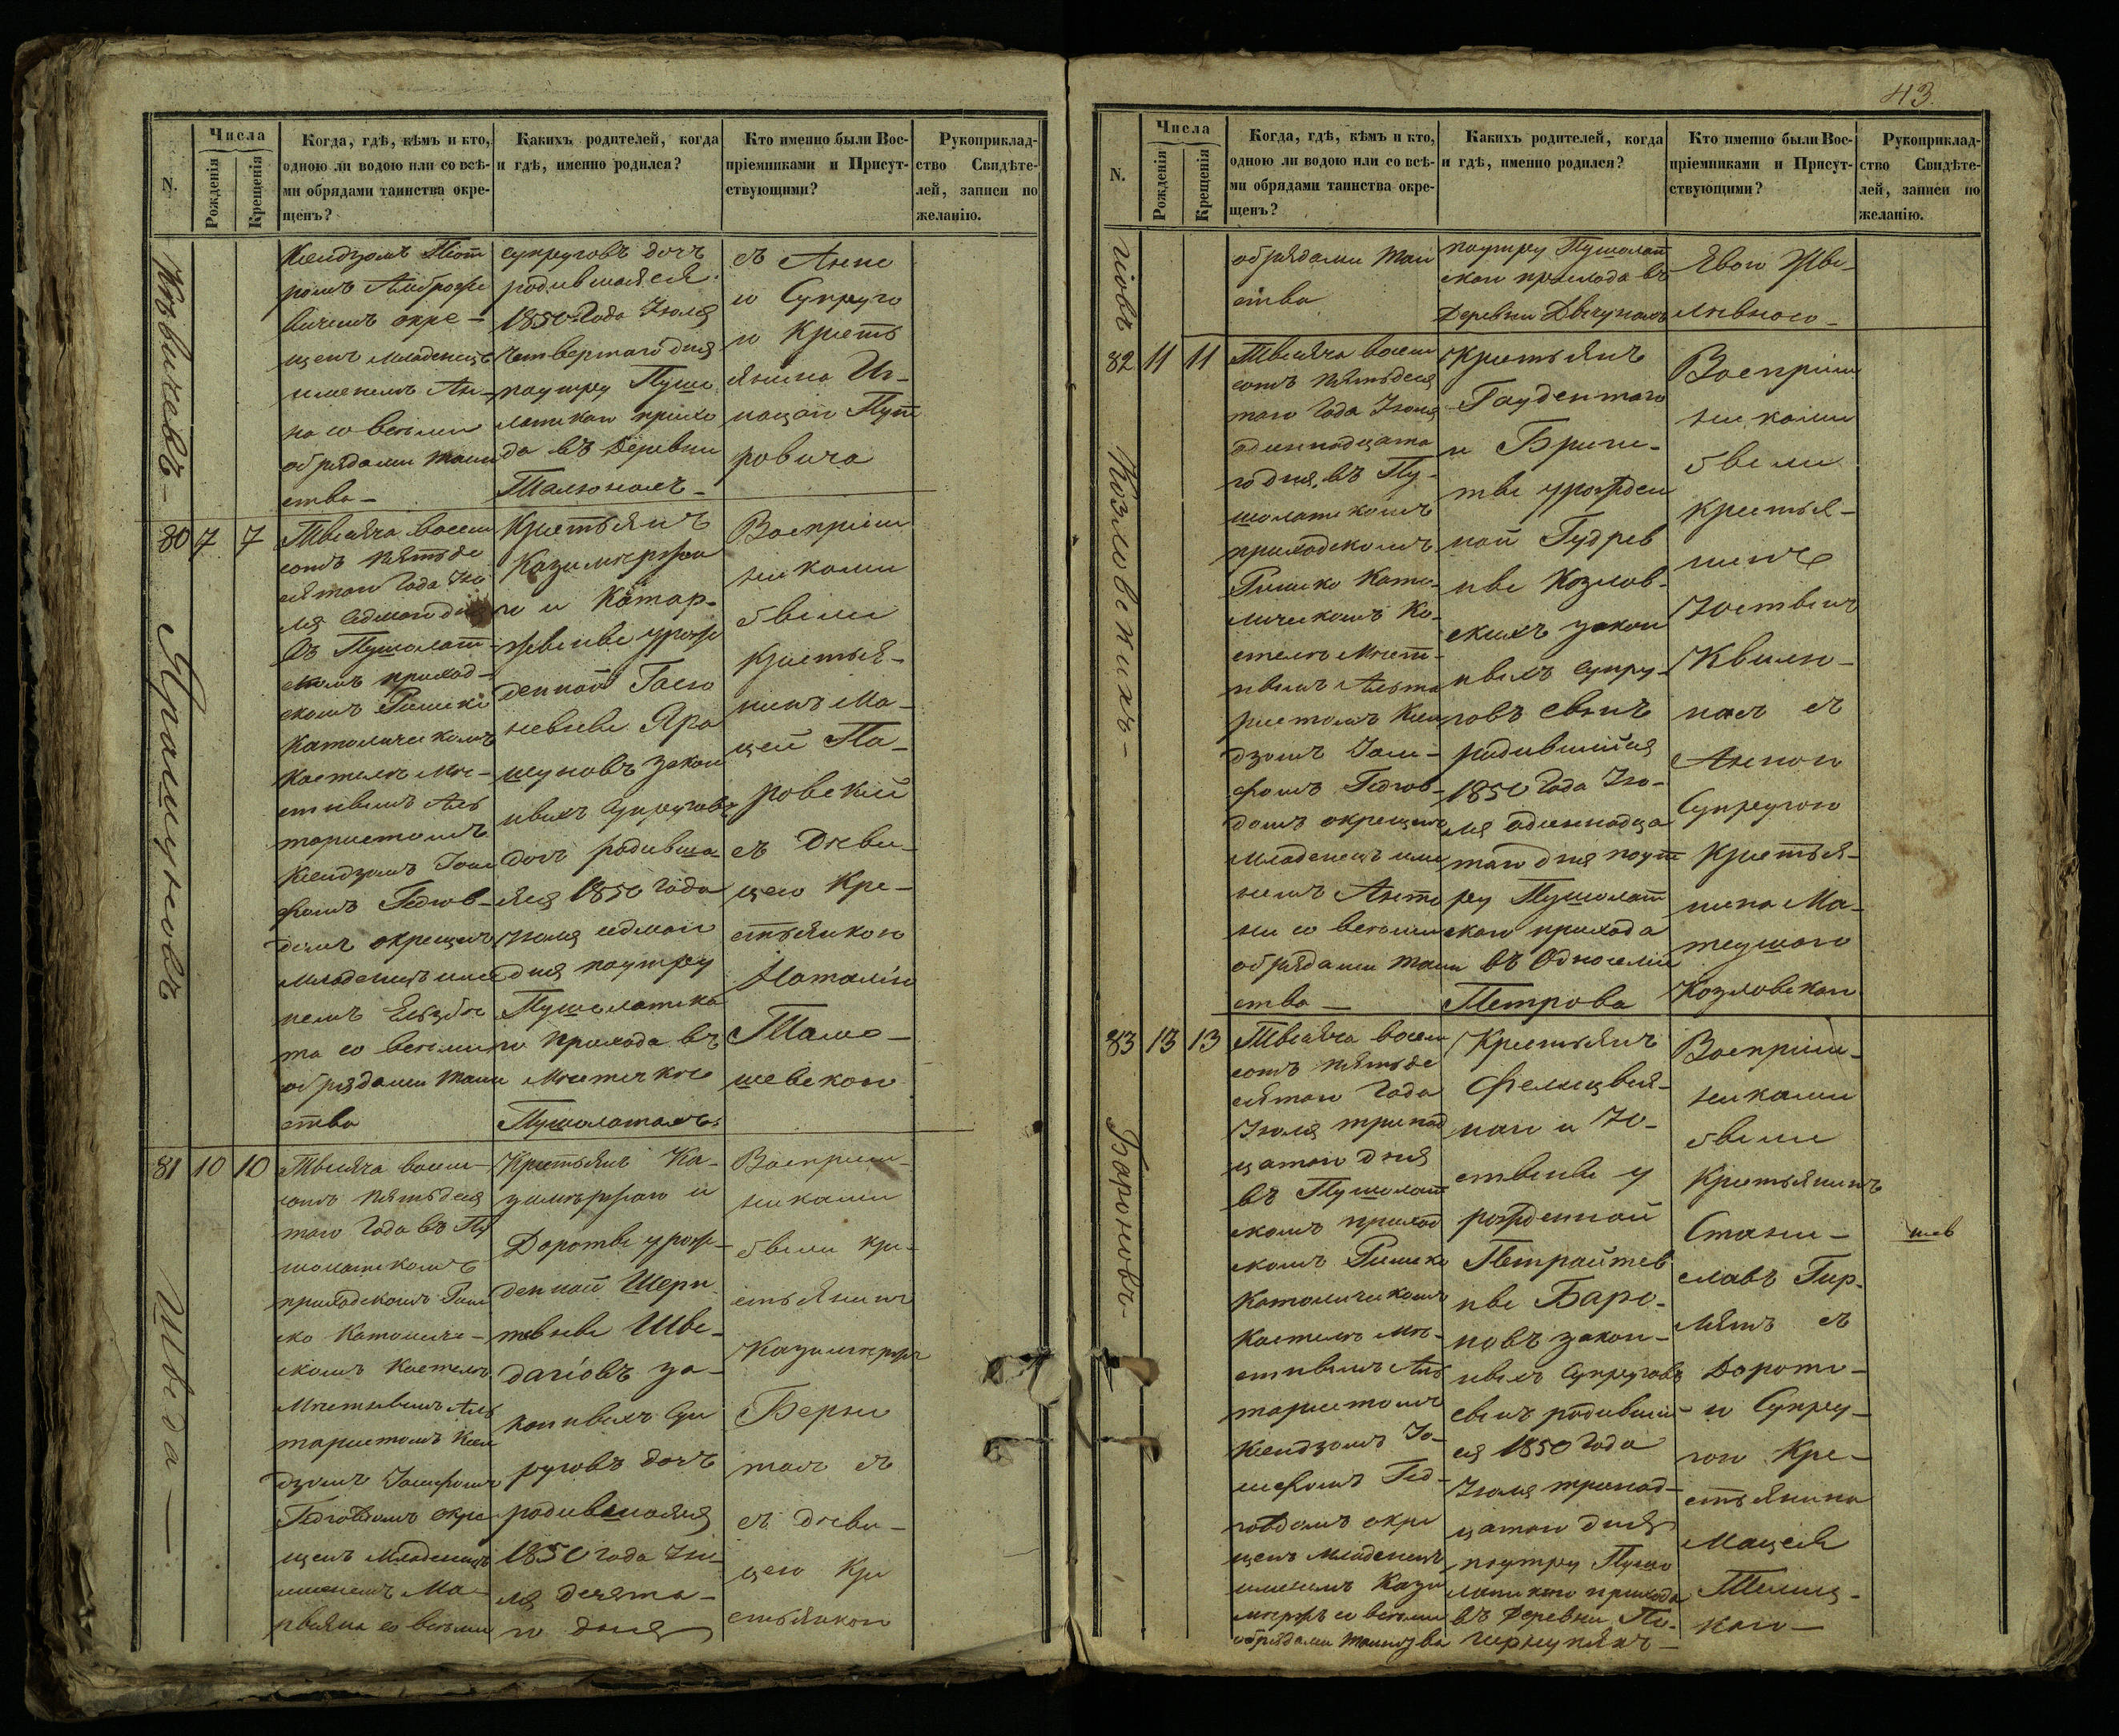 N.
Числа
Рожденія
Крещенія
Когда, гдѣ, кѣмъ и кто,
одною ли водою или со всѣ-
ми обрядами таинства окре-
щенъ?
Какихъ родителей, когда
и гдѣ, именно родился?
Кто именно были Вос-
пріемниками и Присут-
ствующими?
Рукоприклад-
ство Свидѣте-
лей, записи по
желанію.
Ксендзомъ Пет
ромъ Амброже
вичемъ окре-
щенъ младенецъ
именемъ Ан-
на со всѣми
обрядами таин
ства-
супруговъ дочь
родившаяся
1850 Года Іюля
Четвертаго дня
поутру Пушо
латскаго прихо
да въ Деревни
съ Анно
ю Супруго
ю Кресть
янина Иг-
нацаго
ровича
80 7 7
Ярашуновъ
Тысяча восем
сотъ пятьде
сятаго Года Ію
ля седмаго дня
въ Пушолат-
скомъ приход-
скомъ Римско
Католическомъ
Костелѣ Мѣс-
тнымъ Аль
таристомъ
Ксендзомъ Іоси
фомъ Гедгов-
домъ окрещенъ
младенецъ име
немъ Ельзбе
та со всѣми
обрядами таин
ства
Крестьянъ
Казимержа
го и Катар-
жыны урож
денной
невны Яра
шуновъ закон
ныхъ Супруговъ
дочь родивша-
яся 1850 Года
Іюля седмаго
дня поутру
Пушолатска
го Прихода въ
Мѣстечкѣ
Пушолатахъ
Воспріем
никами
были
крестья-
нинъ Ма-
цей Па-
ровскій
съ Дѣви-
цею Кре-
стьянкою
Наталію
Тома-
шевскою
81 10 10
Шведа-
Тысяча восем-
сотъ пятьдеся
таго Года въ Пу
шолатскомъ
приходскомъ Рим
ско Католиче-
скомъ Костелѣ
Мѣстнымъ Аль
таристомъ Ксен
дзомъ Іосифомъ
Гедговдомъ окре
щенъ младенецъ
именемъ Ма-
рыяна со всѣми
Крестьянъ Ка-
зимержаго и
Дороты урож-
денной
Шве-
дагіовъ за-
конныхъ Суп
руговъ дочь
родившаяся
1850 года Ію
ля десята-
го дня
Воспріем-
никами
были кре-
стьянинъ
Казимержъ
съ дѣви-
цею Кре
стьянкою
43.
N.
Числа
Рожденія
Крещенія
Когда, гдѣ, кѣмъ и кто,
одною ли водою или со всѣ-
ми обрядами таинства окре-
щенъ?
Какихъ родителей, когда
и гдѣ, именно родился?
Кто именно были Вос-
пріемниками и Присут-
ствующими?
Рукоприклад-
ство Свидѣте-
лей, записи по
желанію.
гіовъ
обрядами таин
ства
поутру Пушолат
скаго прихода въ
Деревни
82 11 11
Козловскихъ-
Тысяча восем
сотъ пятьдеся
таго Года Іюля
одиннадцата
го дня въ Пу-
шолатскомъ
приходскомъ
Римско Като-
лическомъ Ко-
стелѣ Мѣст-
нымъ Альта
ристомъ Ксен
дзомъ Іоси-
фомъ Гедгов-
домъ окрещенъ
младенецъ име
немъ Анто
ни со всѣми
обрядами таин
ства-
Крестьянъ
Гаудентаго
и Бриги-
ты урожден
ной Гудрев
ны Козлов-
скихъ закон
ныхъ супру-
говъ сынъ
родившійся
1850 Года Ію-
ля одиннадца
таго дня поут
ру Пушолат
скаго прихода
въ Односеліи
Петрова
Воспріем
никами
были
крестья-
нинъ
Юстынъ
съ
Анною
Супругою
Крестья-
нина Ма-
теушаго
Козловскаго
83 13 13
Бароновъ-
Тысяча восем
сотъ пятьде
сятаго Года
Іюля тринад
цатаго дня
въ Пушолат
скомъ приход
скомъ Римско
Католическомъ
Костелѣ Мѣ-
стнымъ Аль
таристомъ
Ксендзомъ Іо-
сифомъ Гед-
говдомъ окре
щенъ младенецъ
именемъ Кази
мержъ со всѣми
обрядами таинства
Крестьянъ
Фелицыя-
наго и Ю-
стыны у
рожденной
Петрайтев
ны Баро-
новъ закон-
ныхъ Супруговъ
сынъ родивший
ся 1850 Года
Іюля тринад-
цатаго дня
поутру Пушо
латскаго прихода
въ Деревни
Воспріем-
никами
были
Крестьянинъ
Стани-
славъ
съ
Дорото-
ю Супру-
гою Кре-
стьянина
Мацея